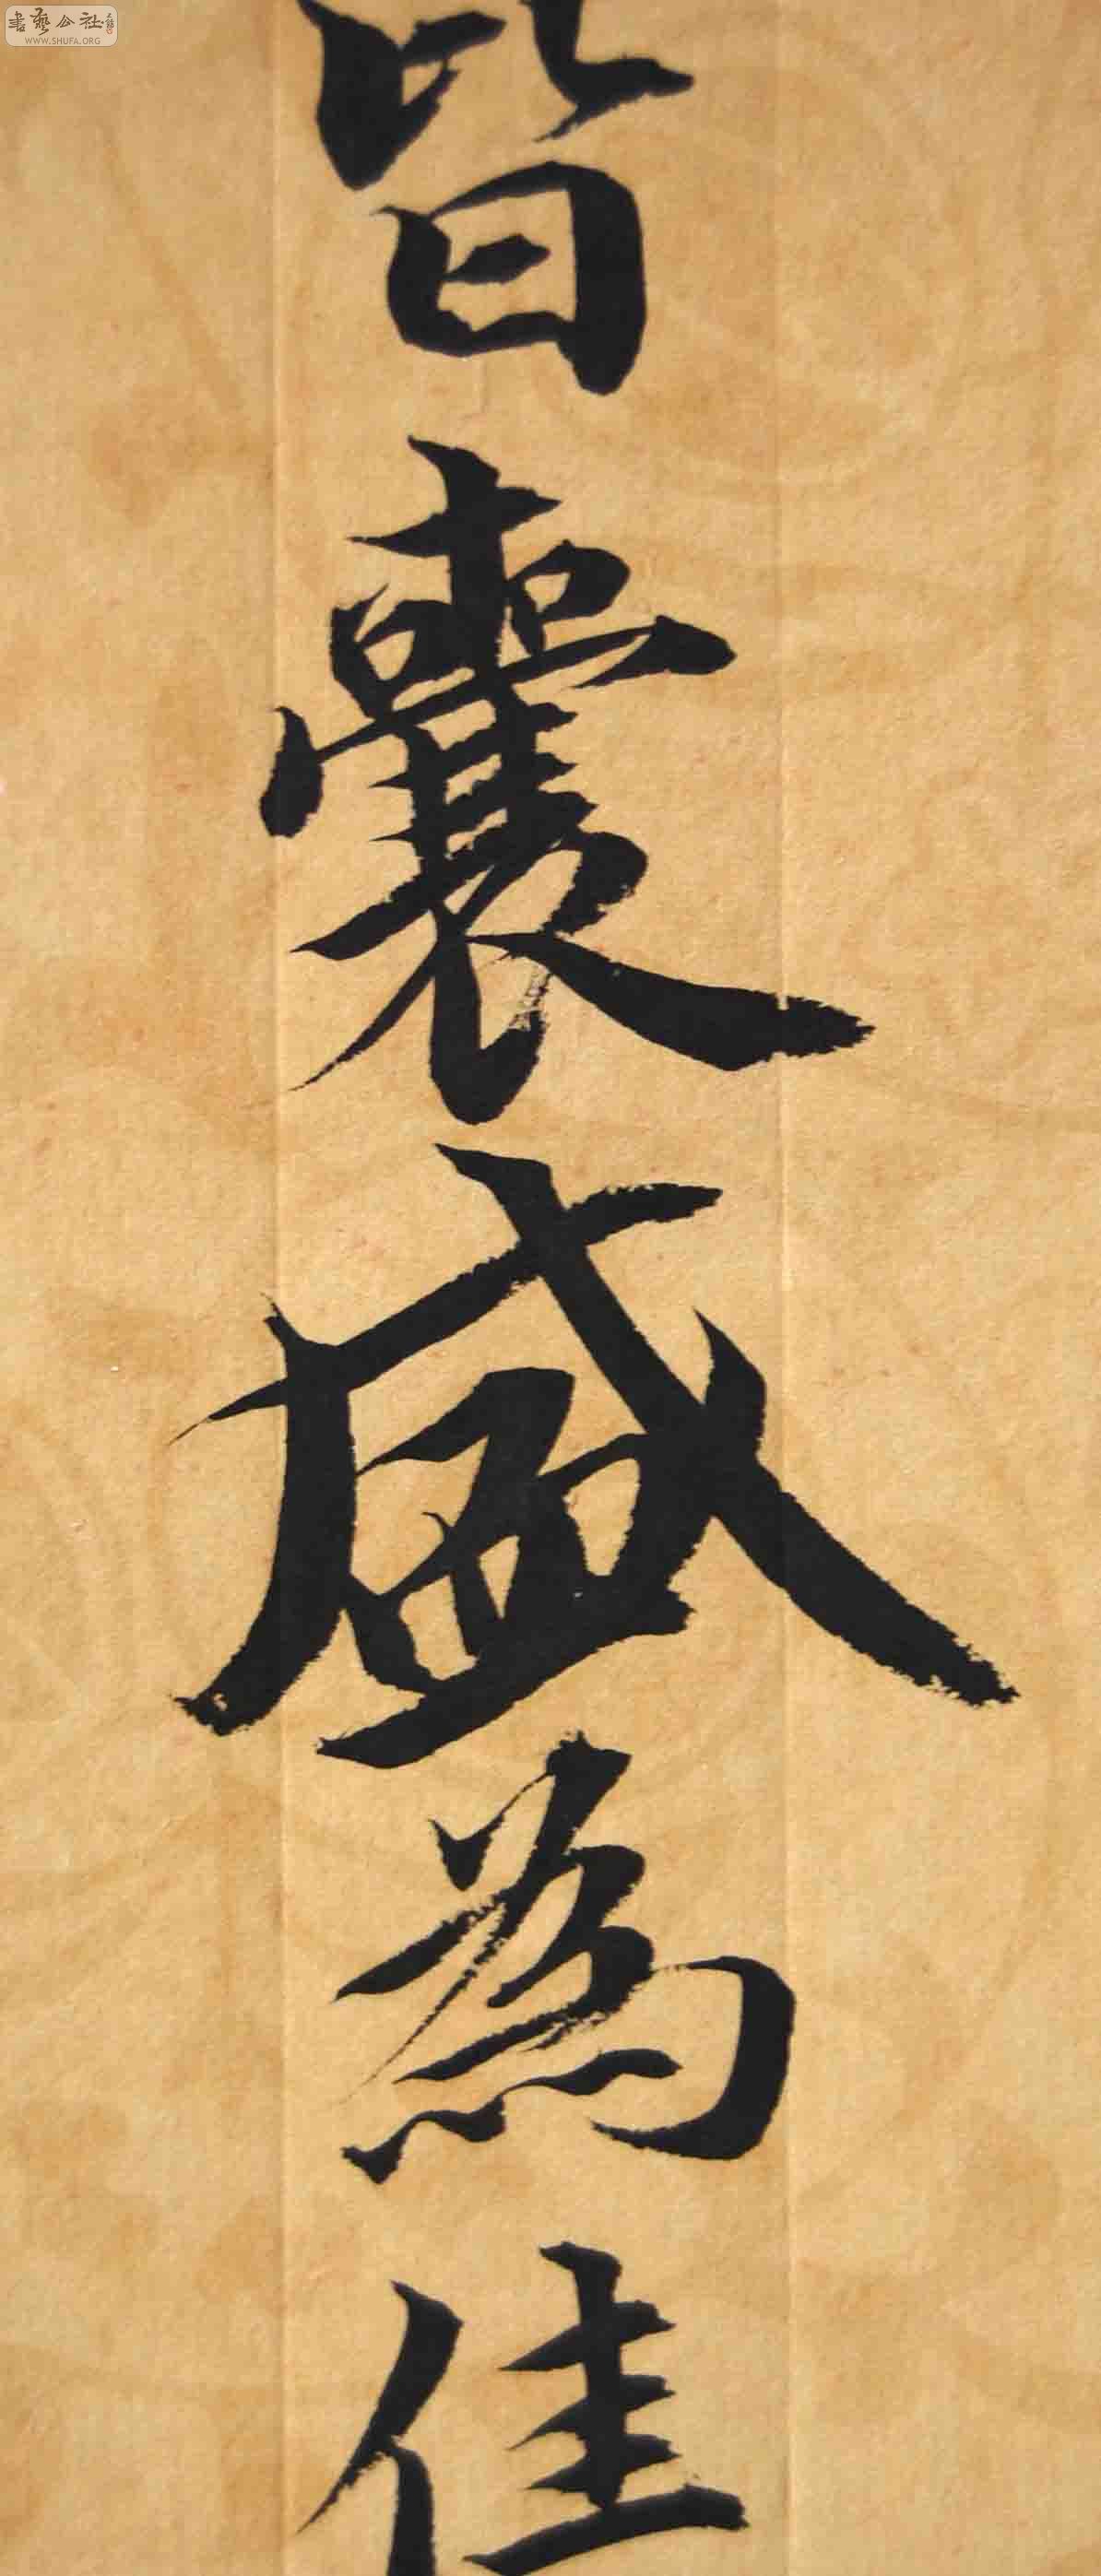 書藝公社
WWW.SHUFA.ORG
皆囊盛為佳